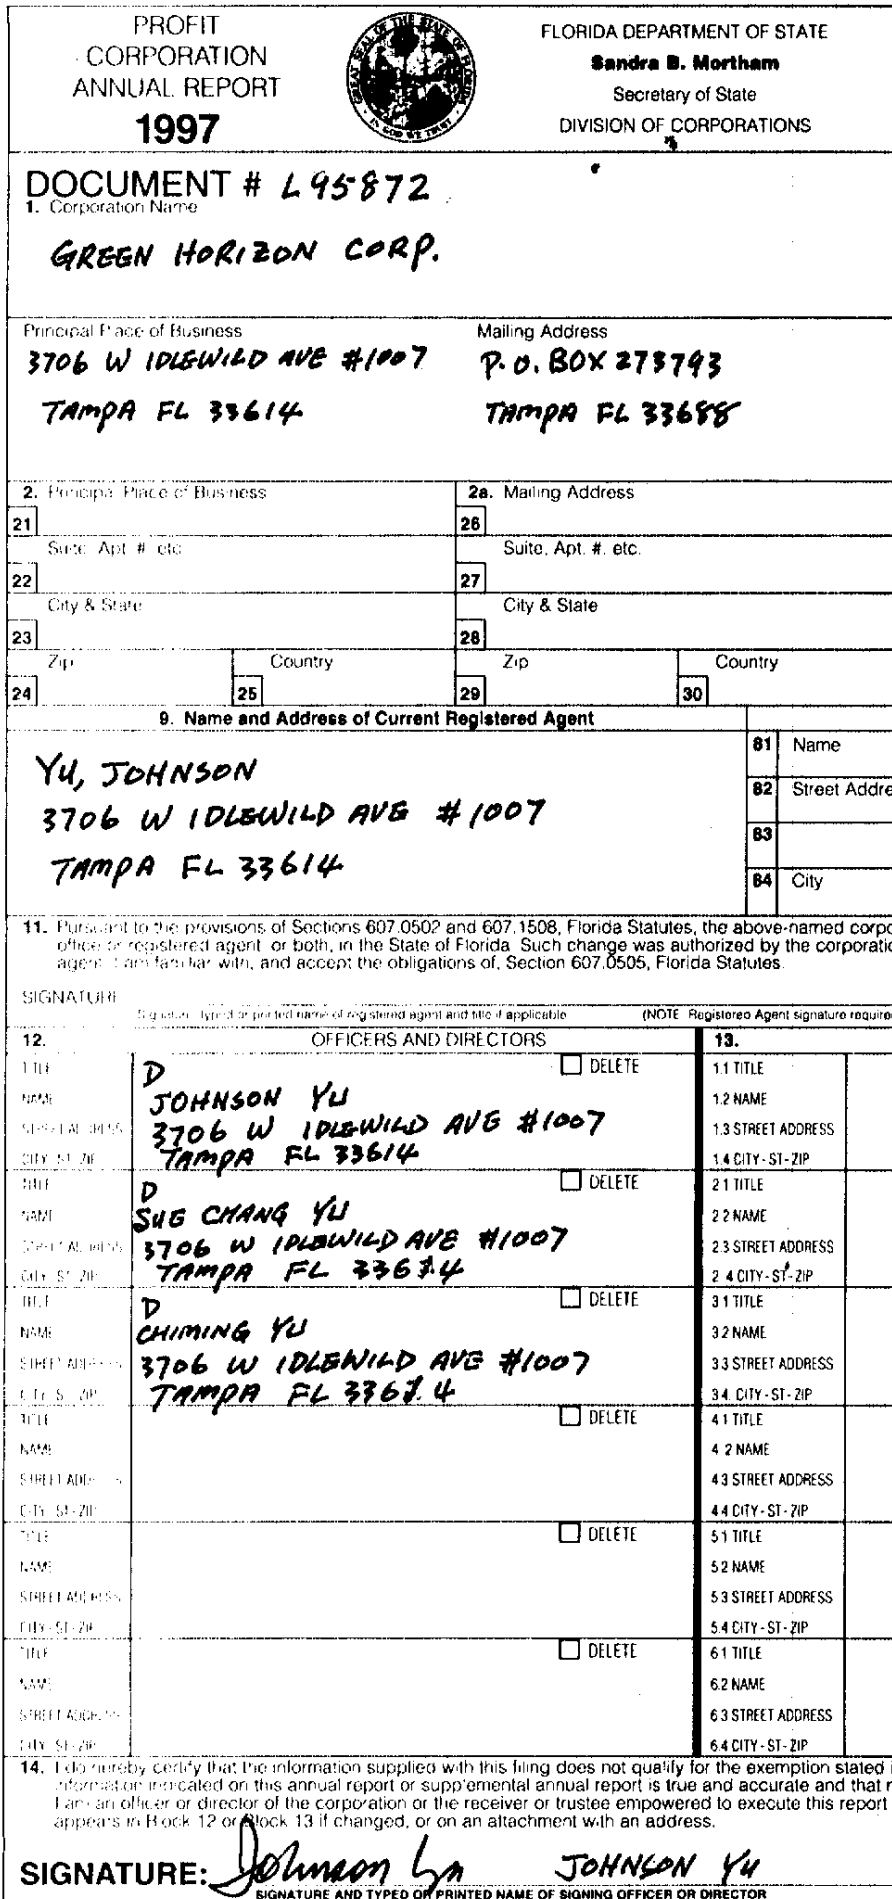 PROFIT
CORPORATION
ANNUAL REPORT
1997
GREAT SEAL OF THE STATE OF FLORIDA
IN GOD WE TRUST
FLORIDA DEPARTMENT OF STATE
Sandra B. Mortham
Secretary of State
DIVISION OF CORPORATIONS
DOCUMENT # L95872
1. Corporation Name
GREEN HORIZON CORP.
Principal Place of Business
3706 W IDLEWILD AVE #1007
TAMPA FL 33614
Mailing Address
P.O. BOX 273793
TAMPA FL 33688
2. Principal Place of Business
21
Suite, Apt. #, etc.
22
City & State
23
Zip
24
Country
25
2a. Mailing Address
26
Suite, Apt. #, etc.
27
City & State
28
Zip
29
Country
30
9. Name and Address of Current Registered Agent
YU, JOHNSON
3706 W IDLEWILD AVE #1007
TAMPA FL 33614
81 Name
82 Street Addre
83
84 City
11. Pursuant to the provisions of Sections 607.0502 and 607.1508, Florida Statutes, the above-named corpo
office or registered agent, or both, in the State of Florida. Such change was authorized by the corporatio
agent. I am familiar with, and accept the obligations of, Section 607.0505, Florida Statutes.
SIGNATURE
Signature, typed or printed name of registered agent and title if applicable (NOTE: Registered Agent signature require
12. OFFICERS AND DIRECTORS 13.
TITLE D DELETE
NAME JOHNSON YU
STREET ADDRESS 3706 W IDLEWILD AVE #1007
CITY-ST-ZIP TAMPA FL 33614
1.1 TITLE
1.2 NAME
1.3 STREET ADDRESS
1.4 CITY-ST-ZIP
TITLE D DELETE
NAME SUE CHANG YU
STREET ADDRESS 3706 W IDLEWILD AVE #1007
CITY-ST-ZIP TAMPA FL 33614
2.1 TITLE
2.2 NAME
2.3 STREET ADDRESS
2.4 CITY-ST-ZIP
TITLE D DELETE
NAME CHIMING YU
STREET ADDRESS 3706 W IDLEWILD AVE #1007
CITY-ST-ZIP TAMPA FL 33614
3.1 TITLE
3.2 NAME
3.3 STREET ADDRESS
3.4. CITY-ST-ZIP
TITLE DELETE
NAME
STREET ADDRESS
CITY-ST-ZIP
4.1 TITLE
4.2 NAME
4.3 STREET ADDRESS
4.4 CITY-ST-ZIP
TITLE DELETE
NAME
STREET ADDRESS
CITY-ST-ZIP
5.1 TITLE
5.2 NAME
5.3 STREET ADDRESS
5.4 CITY-ST-ZIP
TITLE DELETE
NAME
STREET ADDRESS
CITY-ST-ZIP
6.1 TITLE
6.2 NAME
6.3 STREET ADDRESS
6.4 CITY-ST-ZIP
14. I do hereby certify that the information supplied with this filing does not qualify for the exemption stated i
information indicated on this annual report or supplemental annual report is true and accurate and that m
I am an officer or director of the corporation or the receiver or trustee empowered to execute this report
appears in Block 12 or Block 13 if changed, or on an attachment with an address.
SIGNATURE: Johnson Yu JOHNSON YU
SIGNATURE AND TYPED OR PRINTED NAME OF SIGNING OFFICER OR DIRECTOR